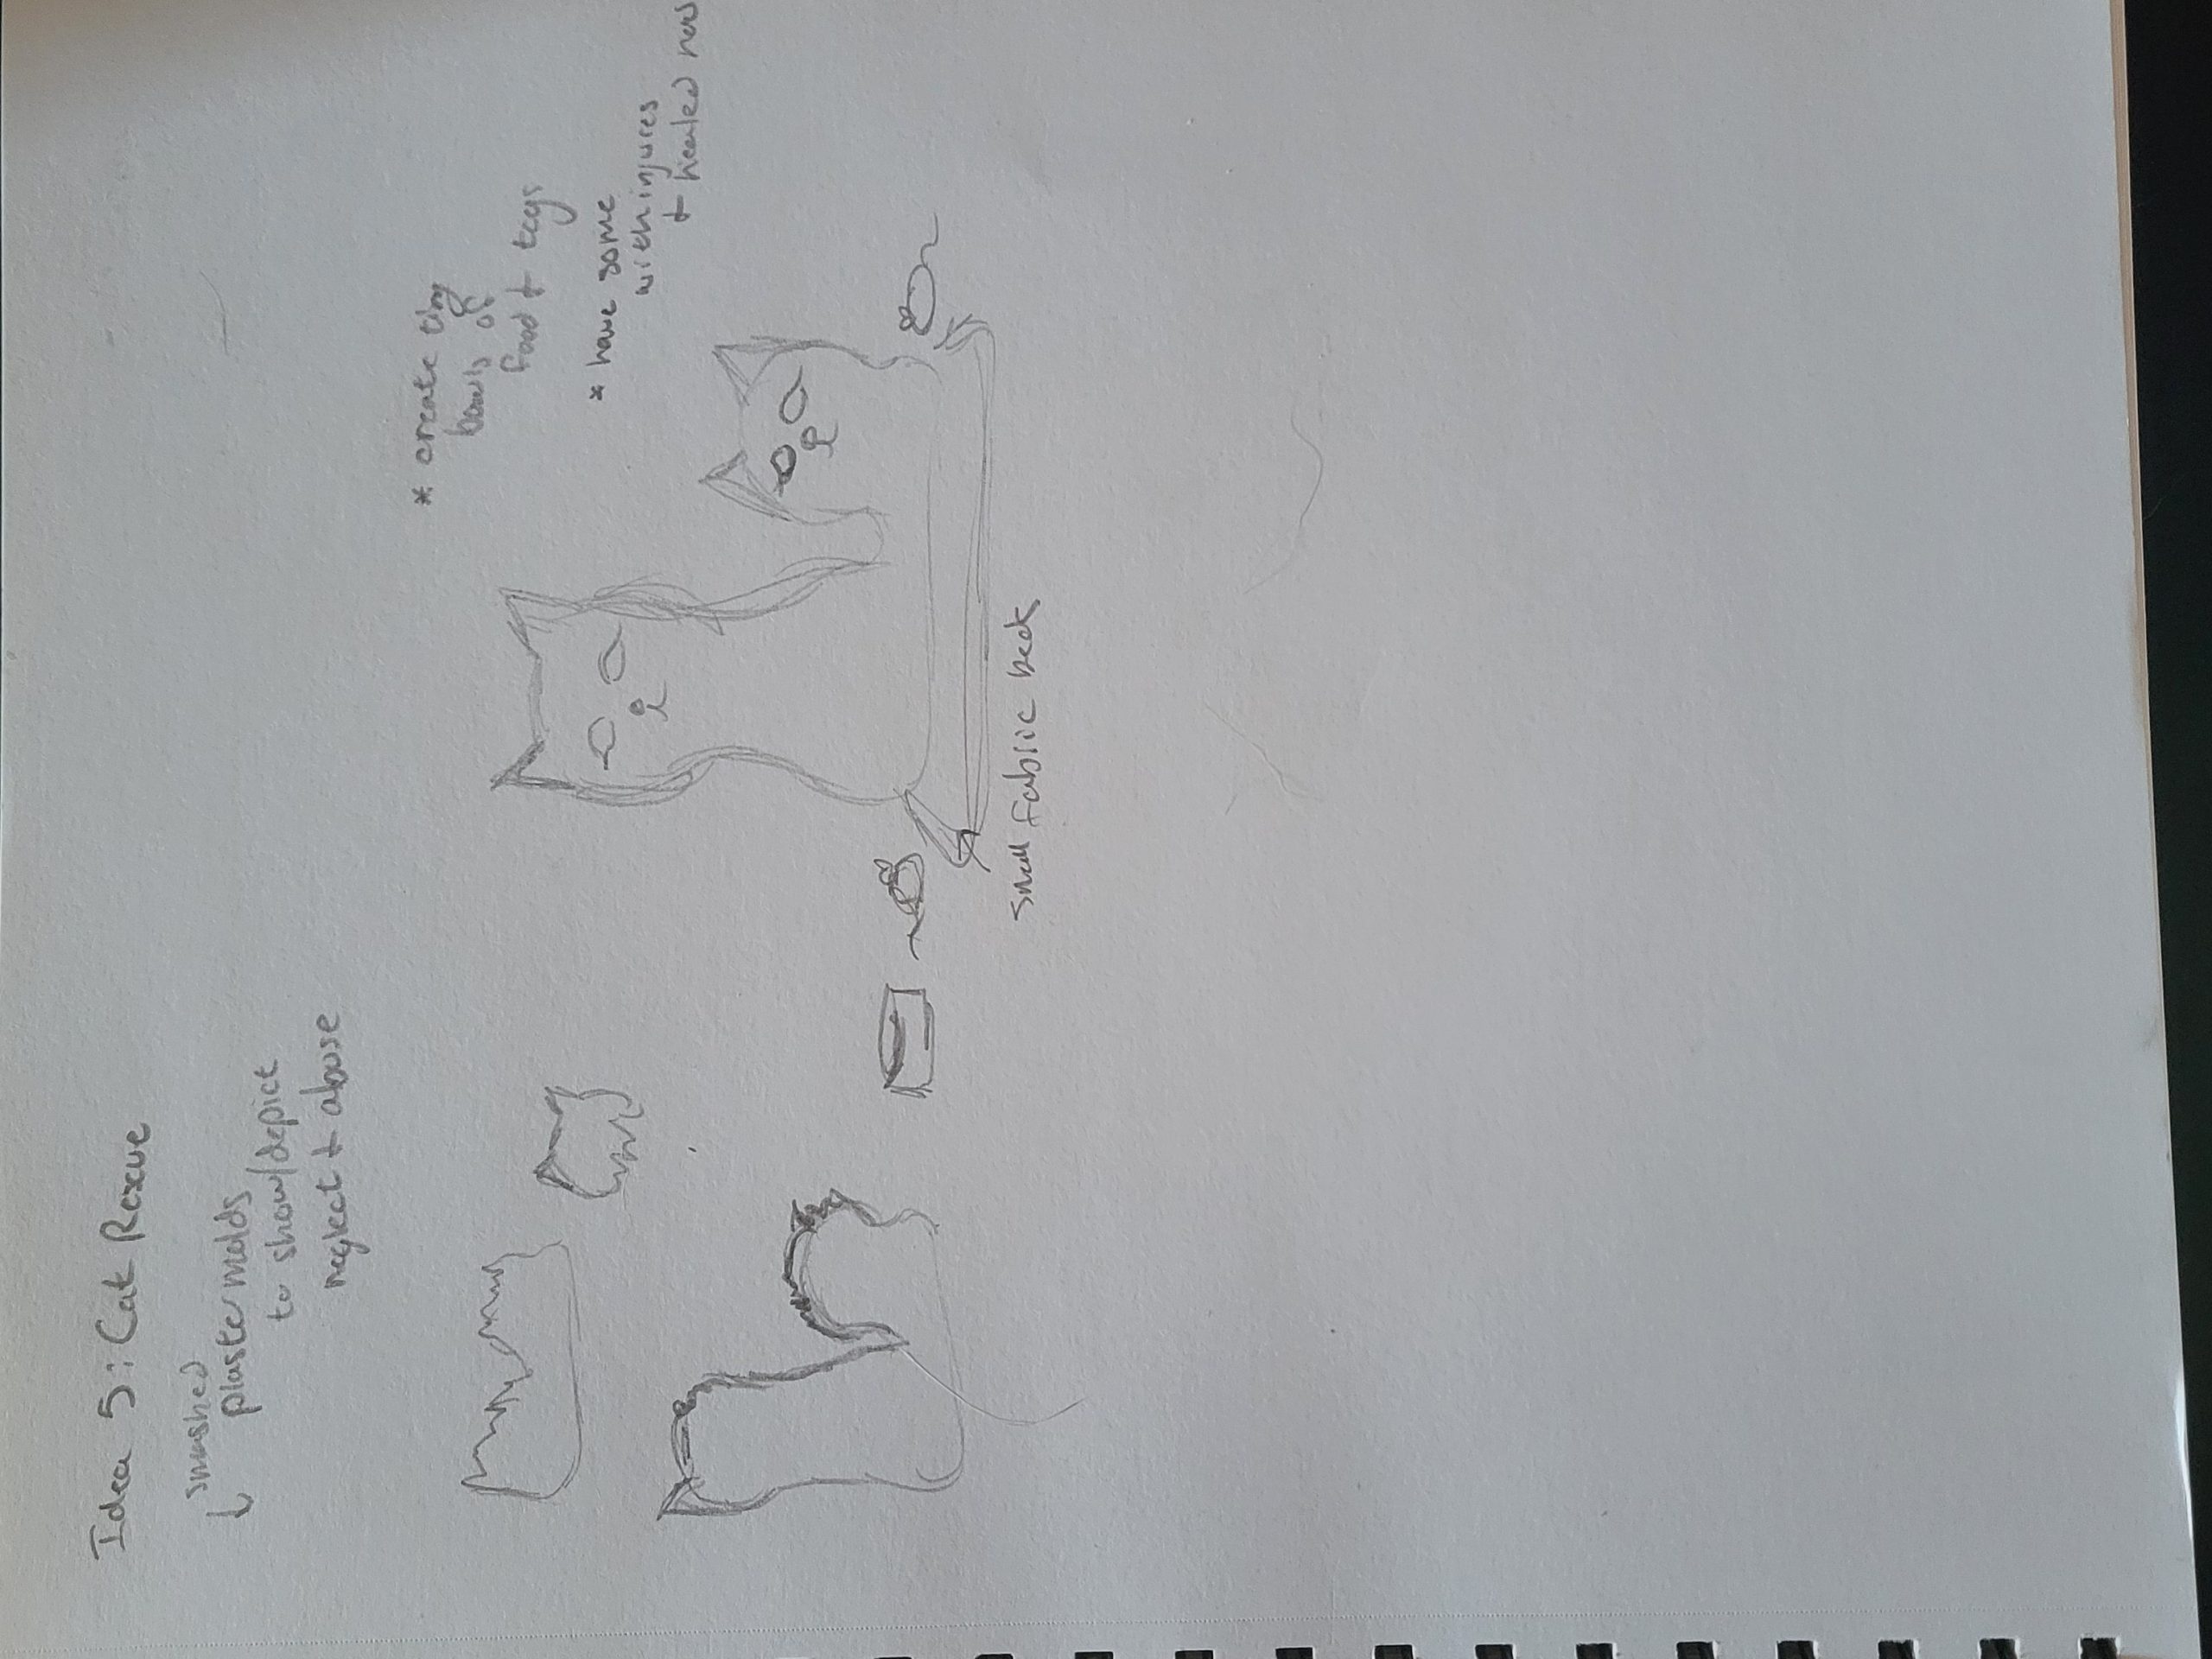 Idea 5: Cat Rescue
smashed
plaster molds
to show/depict
neglect + abuse
* create tiny
bowls of
food + toys
* have some
with injures
+ healed now
small fabric bed